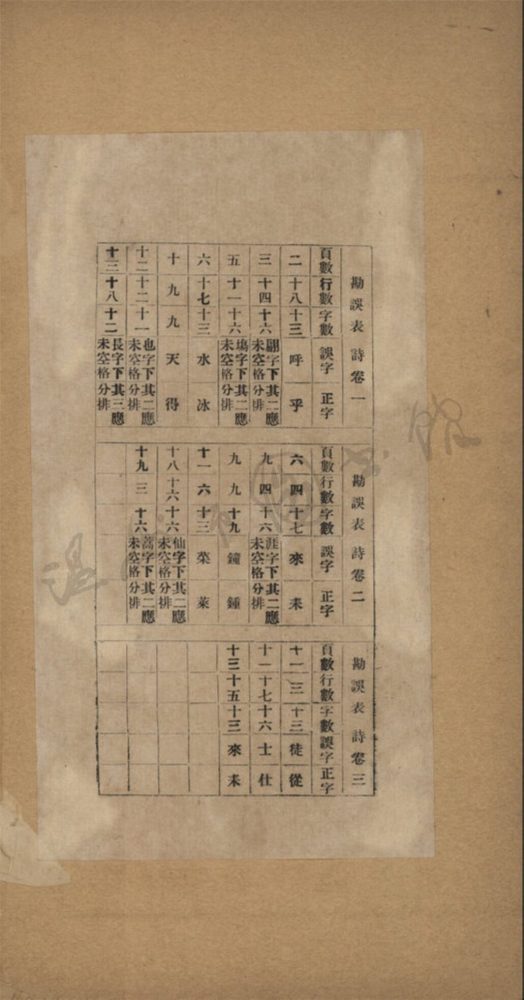 勘誤表 詩卷一
頁數 行數 字數 誤字 正字
二 十八 十三 呼 乎
三 十四 十六 翩字下其二應未空格分排
五 十一 十六 塢字下其二應未空格分排
六 十七 十三 水 冰
十 九 九 天 得
十二 十二 十一 也字下其二應未空格分排
十三 十八 十二 長字下其三應未空格分排
勘誤表 詩卷二
頁數 行數 字數 誤字 正字
六 四 十七 來 未
九 四 十六 涯字下其二應未空格分排
九 九 十九 鐘 鍾
十一 六 十三 菜 萊
十八 十六 十六 仙字下其二應未空格分排
十九 三 十六 字下其二應未空格分排
勘誤表 詩卷三
頁數 行數 字數 誤字 正字
十一 三 十三 徒 從
十一 十七 十六 士 仕
十三 十五 十三 來 未